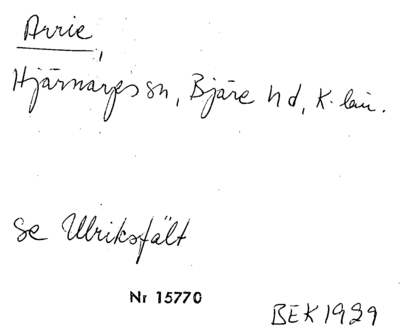 Arrie,
Hjärnarps sn, Bjäre hd, K. län.
se Ulriksfält
Nr 15770
BEK 1929